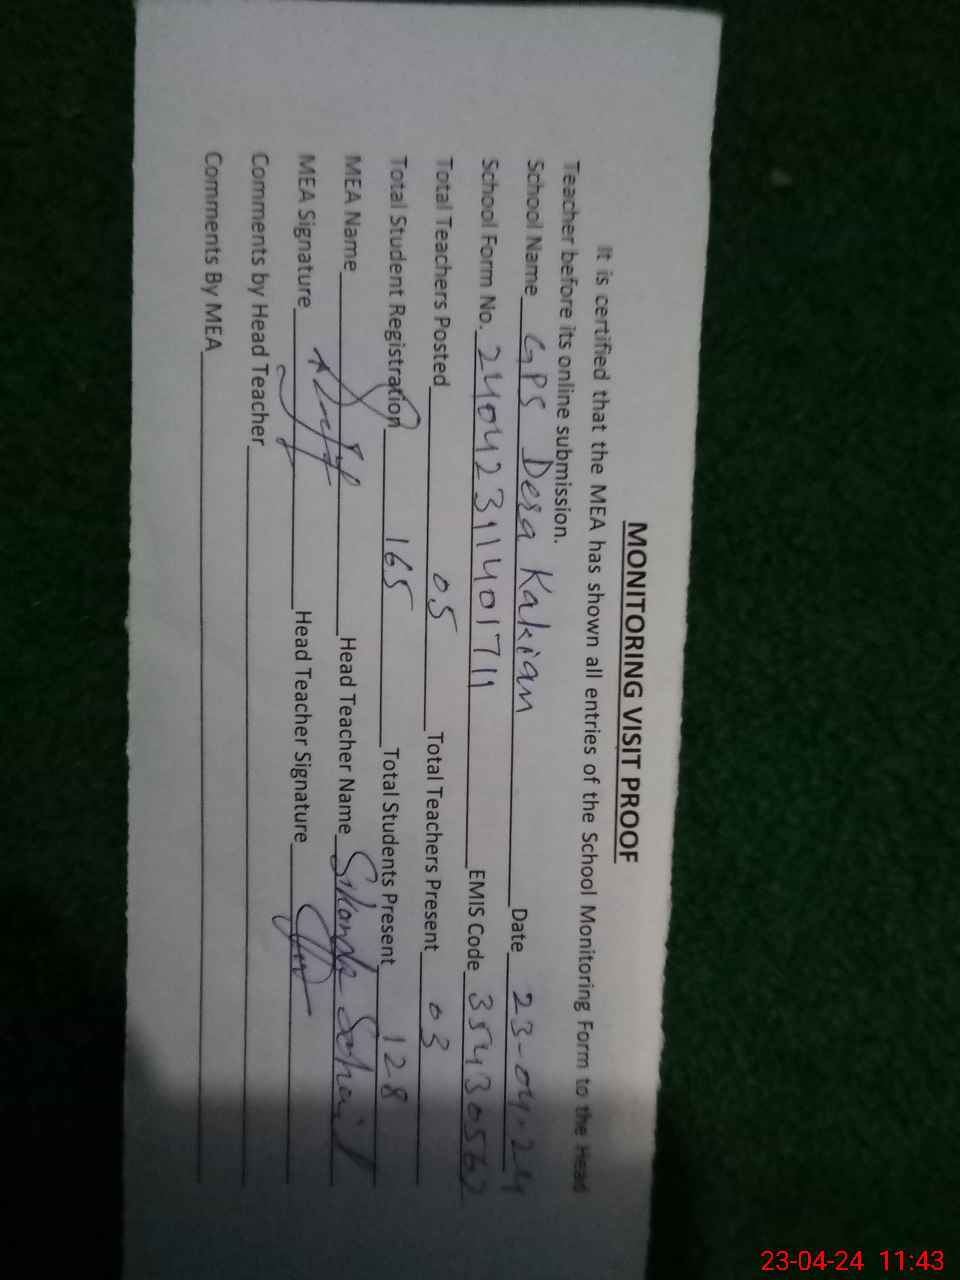 MONITORING VISIT PROOF
It is certified that the MEA has shown all entries of the School Monitoring Form to the Head
Teacher before its online submission.
School Name GPS Dera Kakian Date 23-04-24
School Form No. 24042311401711 EMIS Code 35430562
Total Teachers Posted 05 Total Teachers Present 03
Total Student Registration 165 Total Students Present 128
MEA Name Head Teacher Name
MEA Signature Head Teacher Signature
Comments by Head Teacher
Comments By MEA
23-04-24 11:43